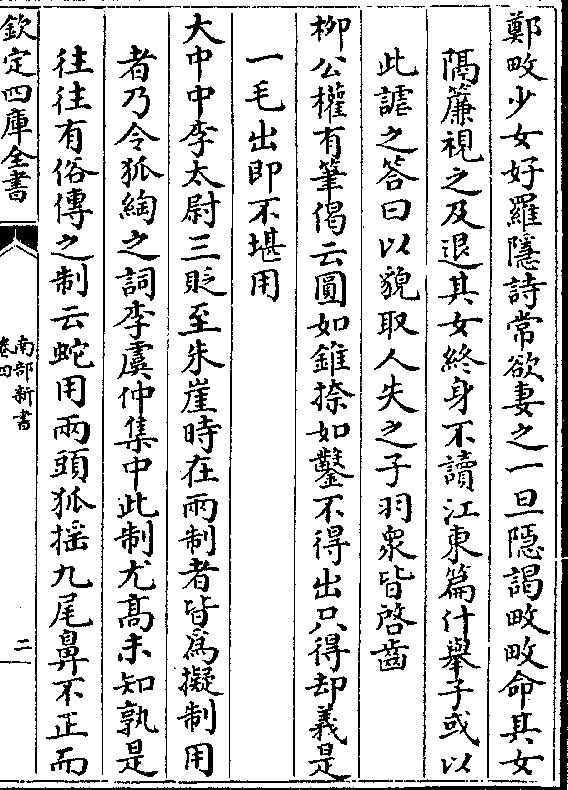 鄭畋少女好羅隱詩常欲妻之一旦隱謁畋畋命其女
隔簾視之及退其女終身不讀江東篇什舉子或以
此謔之答曰以貌取人失之子羽衆皆啓齒
柳公權有筆偈云圓如錐捺如鑿不得出只得却義是
一毛出即不堪用
大中中李太尉三貶至朱崖時在兩制者皆為擬制用
者乃令狐綯之詞李虞仲集中此制尤髙未知孰是
往往有俗傳之制云蛇用兩頭狐揺九尾鼻不正而
欽定四庫全書
南部新書
卷四
二